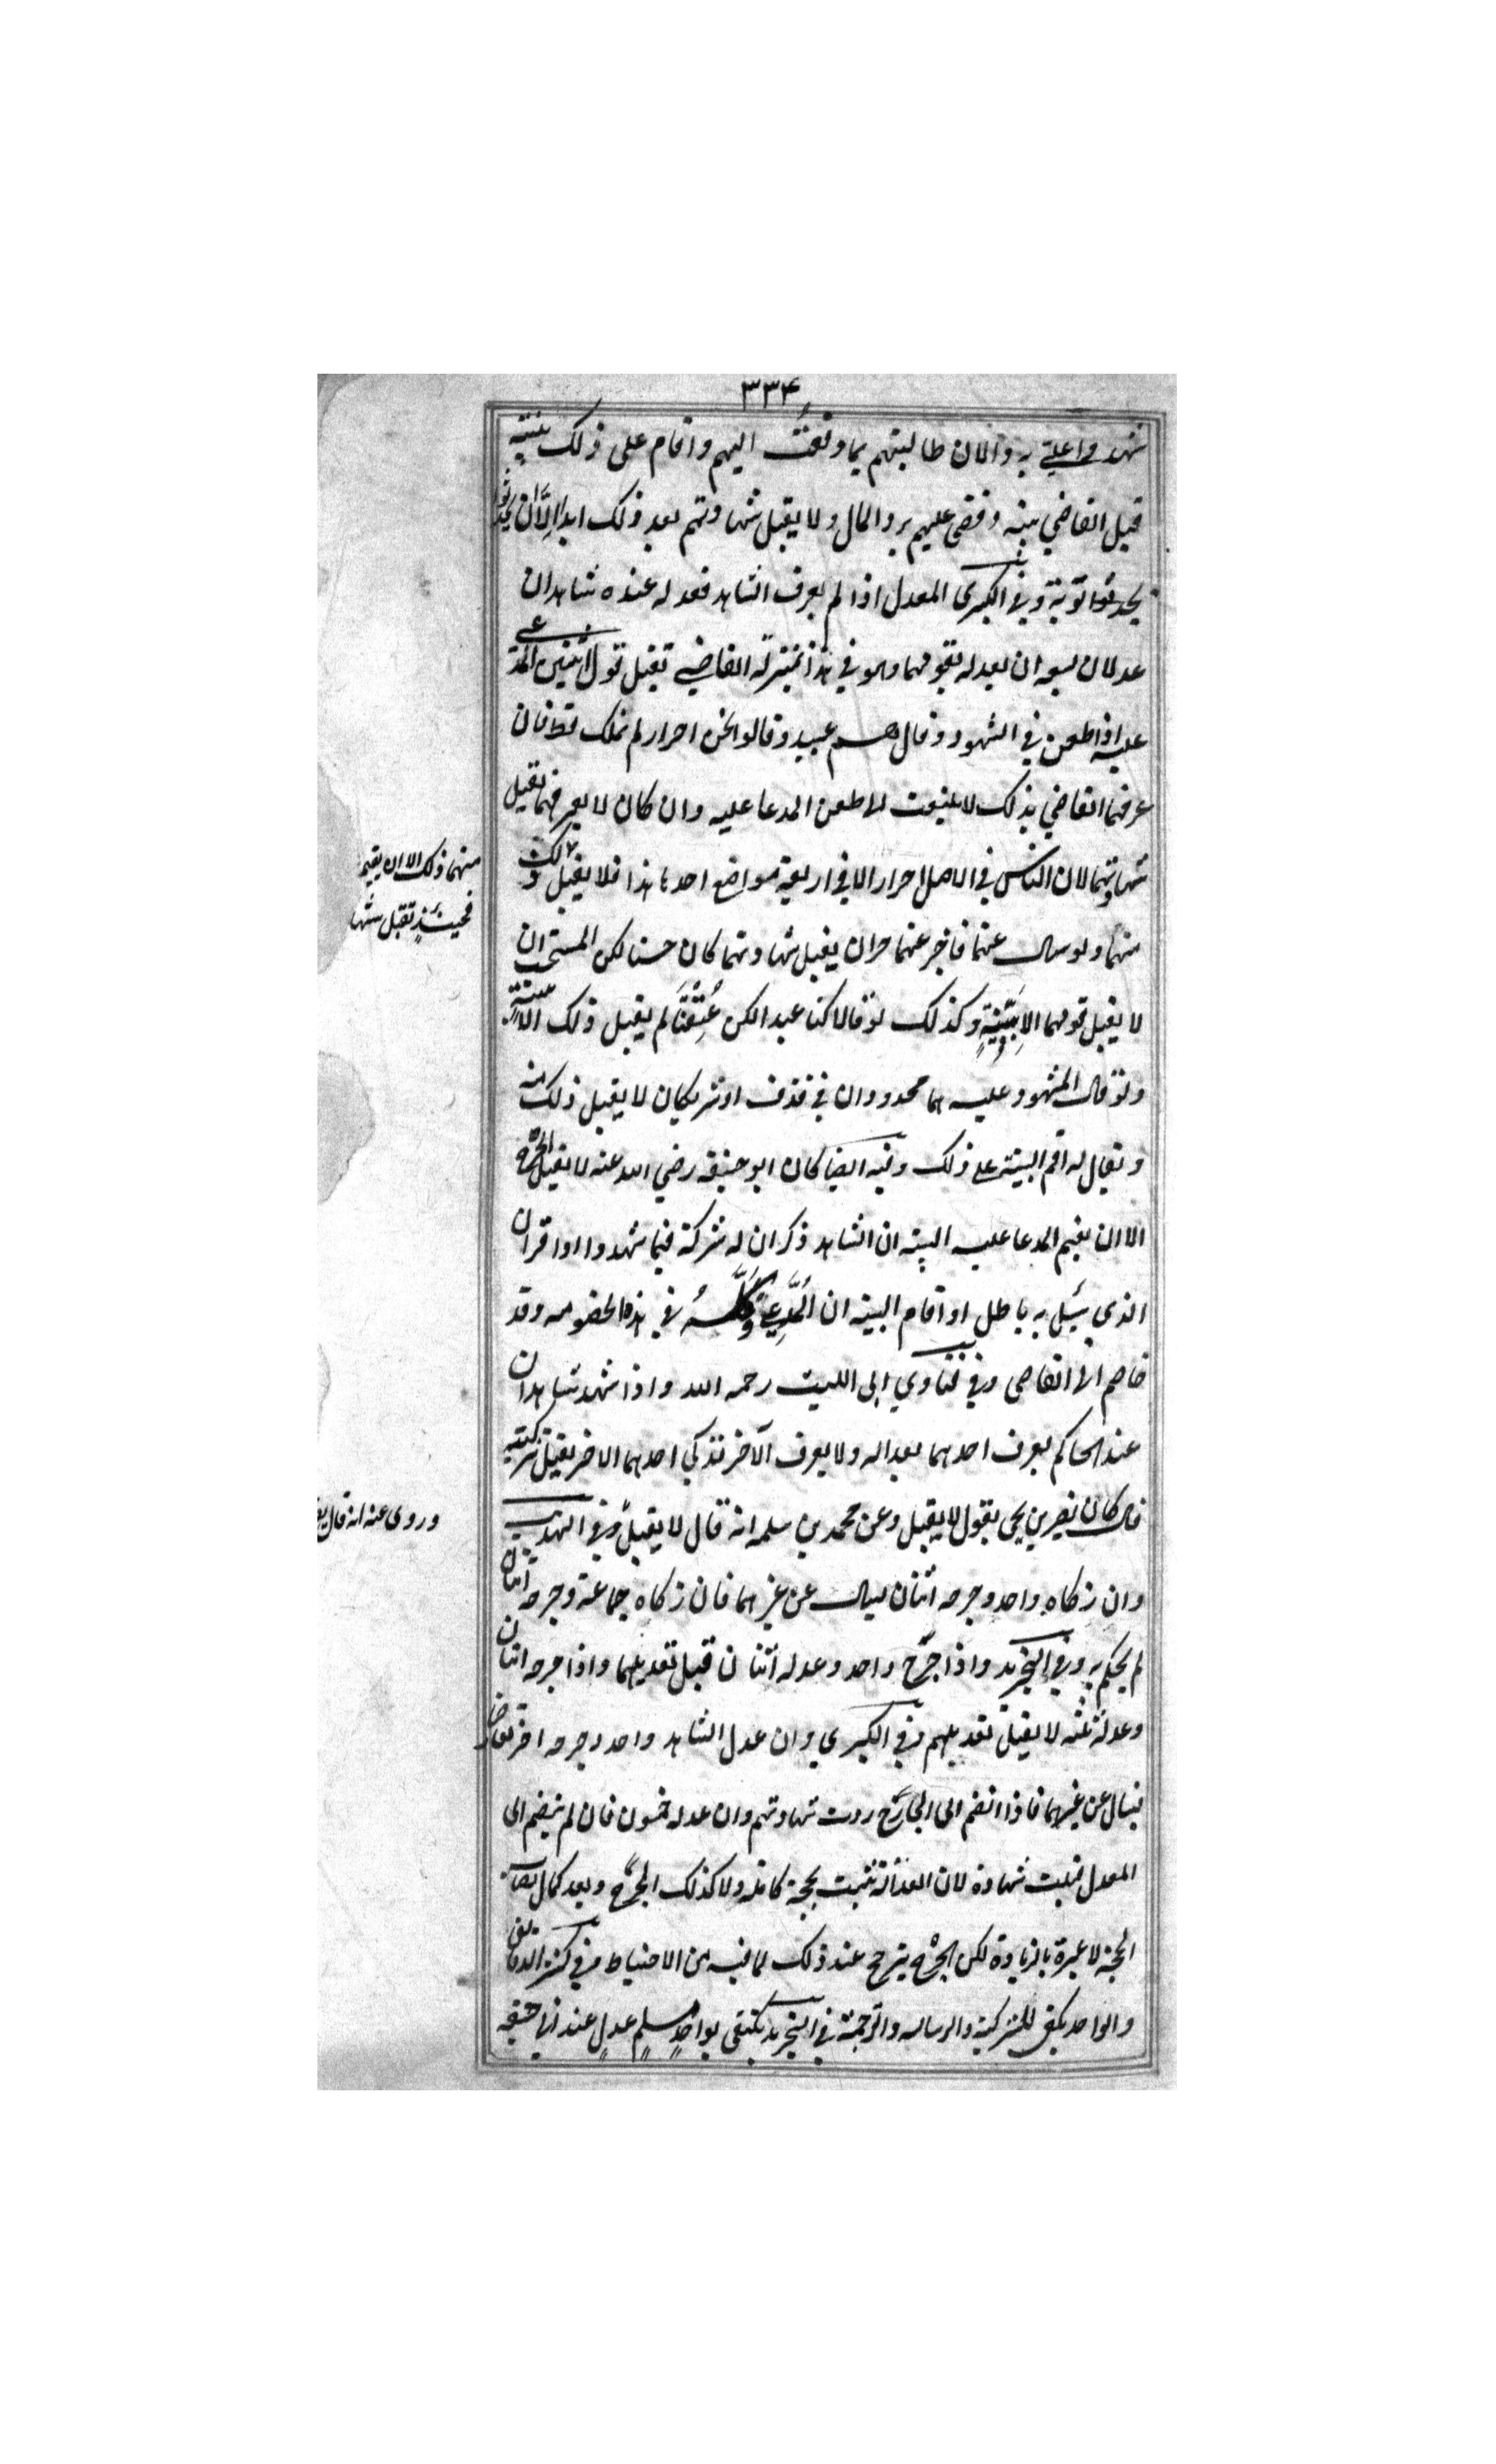 ٣٣۴
شهدوا علي به والان طالبتهم بما دفعت اليهم واقام على ذلك بينة
قبل القاضي بينه وقضى عليهم برد المال ولا يقبل شهادتهم بعد ذلك ابدا الا ان
يحدثوا توبة وفي الكبرى المعدل اذا لم يعرف الشاهد فعدله عنده شاهدان
عدلان يسعه ان يعدله بقولهما وهو في هذا بمنزلة القاضي تقبل قول اثنين المدعى
عليه اذا طعن في الشهود وقال هم عبيد وقالوا نحن احرار لم نملك قط فان
عرفهما القاضي بذلك لا يلتفت لا طعن المدعا عليه وان كان لا يعرفهما تقبل
شهادتهما لان الناس في الاصل احرار الا في اربعة مواضع احدها هذا فلا يقبل ذلك
منهما ولو سال عنهما فاخبر عنهما حران يقبل شهادتهما كان حسنا لكن المستحب ان
لا يقبل قولهما الا ببينة وكذلك لو قالا كنا عبدا لكن عتقنا لم يقبل ذلك الا ببينة
ولو قال المشهود عليه هما محدودان في قذف او شريكان لا يقبل ذلك منه
ويقال له اقم البينة على ذلك وفيه ايضا كان ابو حنيفه رضي الله عنه لا يقبل الجرح
الا ان يقيم المدعا عليه البينه ان الشاهد ذكر ان له شركة فيما شهدوا او اقر ان
الذي يسئل به باطل او اقام البينه ان المدعي وكله في هذه الخصومه وقد
خاصم الى القاضى وفي فتاوي ابى الليث رحمه الله واذا شهد شاهدان
عند الحاكم يعرف احدهما بعداله ولا يعرف الآخر فزكى احدهما الاخر يقبل تزكيته
قال كان نصر بن يحيى يقول لا يقبل وعن محمد بن سلمه انه قال لا يقبل وفي التهذيب
وان زكاه واحد وجرحه اثنان يسال عن غيرهما فان زكاه جماعة وجرحه اثنان
لم يحكم به وفي التجريد واذا جرح واحد وعدله اثنان قبل تعديلهما واذا جرحه اثنان
وعدله ثلثه لا يقبل تعديلهم وفي الكبرى وان عدل الشاهد واحد وجرحه اخر تعارضا
فيسال عن غيرهما فاذا انضم الى الجارح ردت شهادتهم وان عدله خمسون فان لم ينضم الى
المعدل قبلت شهادة لان العدالة تثبت بحجة كاملة ولا كذلك الجرح وبعد كمال نصاب
الحجة لا عبرة بالزيادة لكن الجرح يترجح عند ذلك لما فيه من الاحتياط وفي كنز الدقائق
والواحد يكفي للتزكية والرساله والترجمة في التجريد يكتفى بواحد مسلم عدل عند ابي حنيفه
منهما ذلك الا ان يقيم
فحينئذ تقبل شها
وروى عنه انه قال